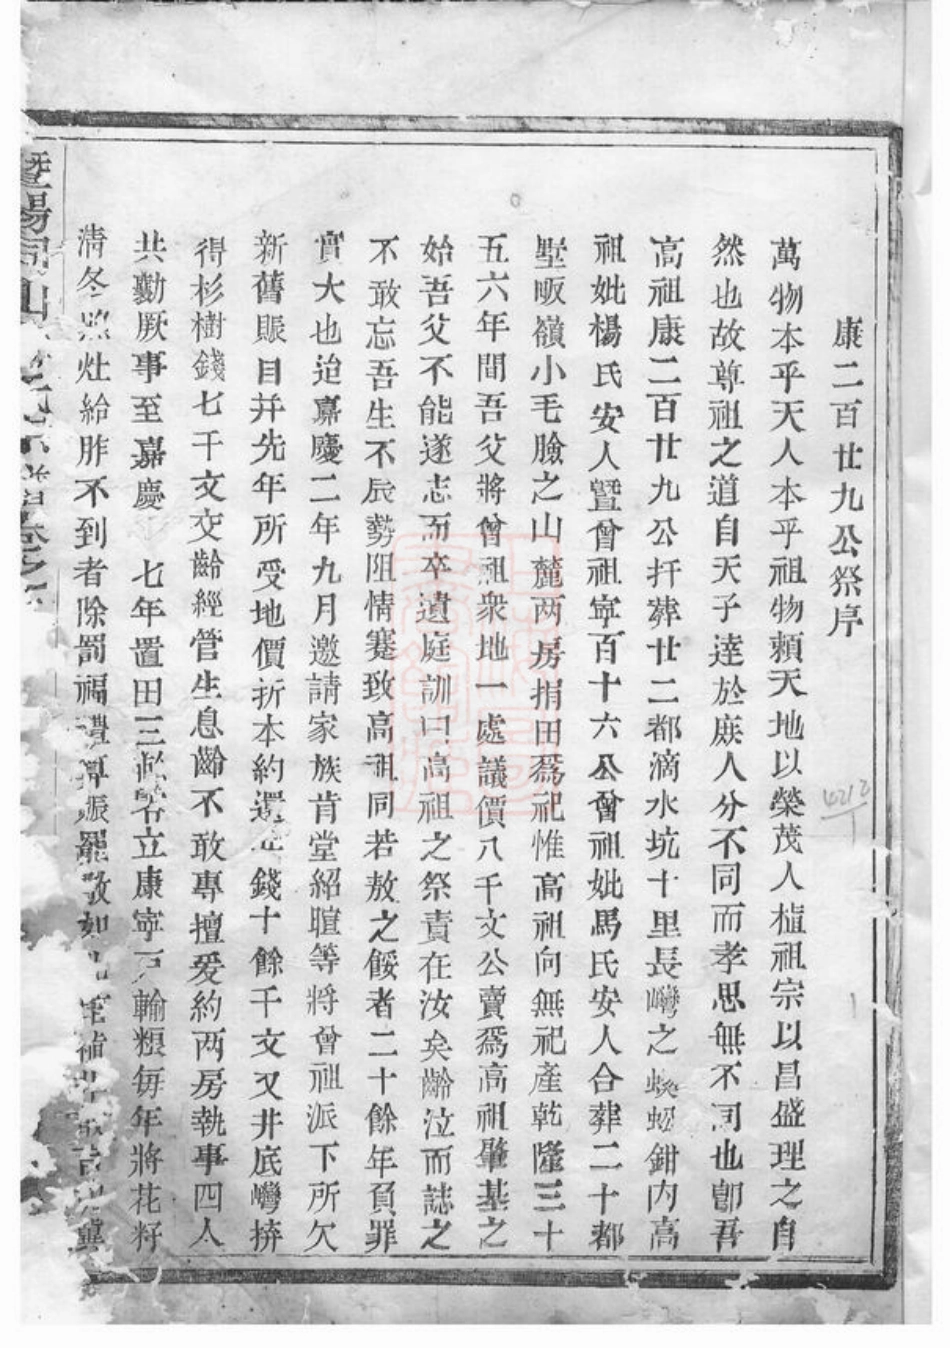 康二百廿九公祭序
萬物本乎天人本乎祖物賴天地以榮茂人植祖宗以昌盛理之自
然也故尊祖之道自天子達於庶人分不同而孝思無不同也卽吾
高祖康二百廿九公扞葬廿二都滴水坑十里長灣之蜈蚣鉗內高
祖妣楊氏安人曁曾祖寧百十六公曾祖妣馬氏安人合葬二十都
墅畈嶺小毛臉之山麓两房捐田爲祀惟高祖向無祀產乾隆三十
五六年間吾父將曾祖衆地一處議價八千文公賣爲高祖肇基之
始吾父不能遂志而卒遺庭訓曰高祖之祭責在汝矣齡泣而誌之
不敢忘吾生不辰勢阻情蹇致高祖同若敖之餒者二十餘年負罪
實大也迨嘉慶二年九月邀請家族肯堂紹暄等將曾祖派下所欠
新舊賬目并先年所受地價折本約還錢十餘千文又井底灣拚
得杉樹錢七千文交齡經管生息齡不敢專擅爰約两房執事四人
共勷厥事至嘉慶 七年置田三畝零立康寧戶輸粮每年將花籽
清冬 灶給胙不到者除罰福禮算賬罷敬如 補
曁陽 山